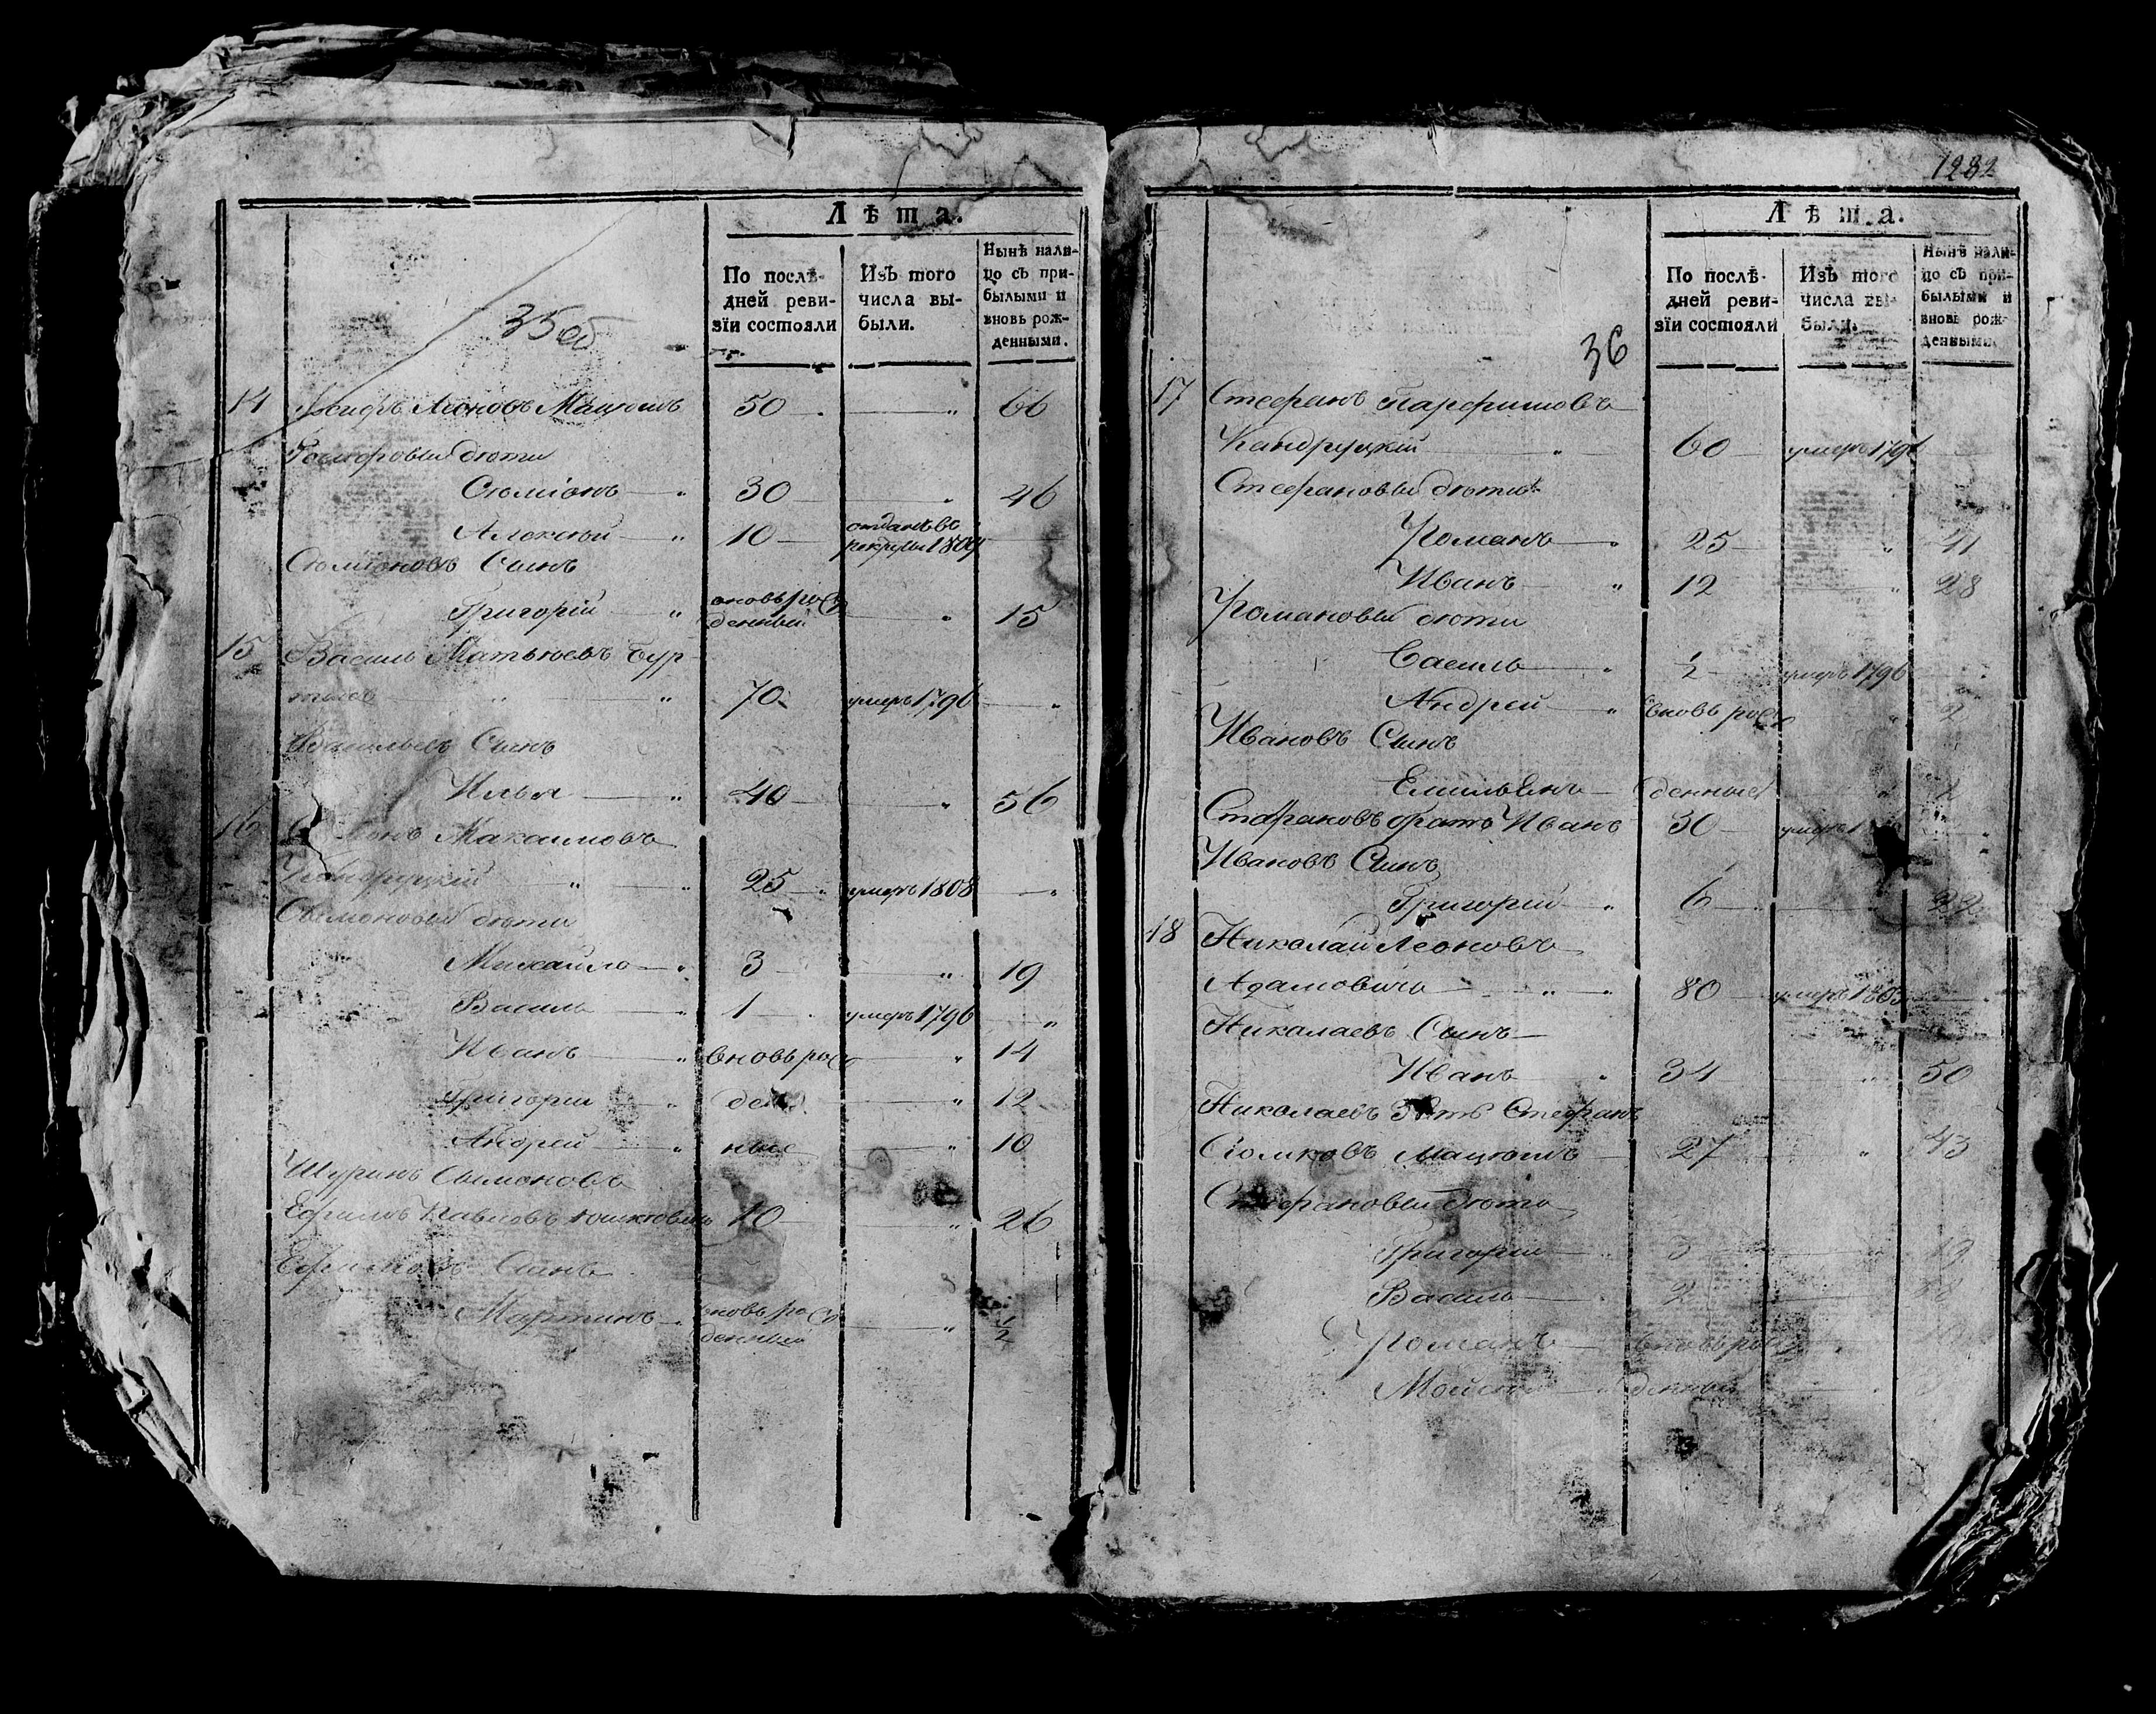 35об
Лѣта.
По послѣ-
дней реви-
зїи состояли
Изъ того
числа вы-
были.
Нынѣ нали-
цо съ при-
былыми и
вновь рож-
денными.
14 Леоновъ 50 66
дѣти
Сѣміонъ 30 46
Алексѣй 10 отданъ въ
рекруты 1809
Сѣміоновъ Сынъ
Григорій вновь рож
денный 15
15 Василь Матвѣевъ Бур-
70 умеръ 1796
Васильевъ Сынъ
Илья 40 56
16 Максимовъ
Кандруцкій 25 умеръ 1808
Сымоновы дѣти
Михайло 3 19
Василь 1 умеръ 1796
Иванъ вновь рож 14
Григорій ден 12
Андрей ные 10
Шуринъ Сымоновъ
Ефимъ Павловъ 10 26
Ефимовъ Сынъ
Мартинъ вновь рож
денный 1/2
1282
36
Лѣта.
По послѣ-
дней реви-
зїи состояли
Изъ того
числа вы-
были.
Нынѣ нали-
цо съ при-
былыми и
вновь рож-
денными.
17 Стефанъ Парфимовъ
Кандруцкій 60 умеръ 1796
Стефановы дѣти
Романъ 25 41
Иванъ 12 28
Романовы дѣти
Василь 1/2 умеръ 1796
Андрей вновь рож 2
Ивановъ Сынъ
Емильянъ денные
Стефановъ братъ Иванъ 30 умеръ
Ивановъ Сынъ
Григорій 6 22
18 Николай Леоновъ
Адамовичъ 80 умеръ
Николаевъ Сынъ
Иванъ 34 50
Николаевъ Зять Стефанъ
27 43
Стефановы дѣти
Григорій 3 19
Василь 2
Романъ вновь рож
Мойсей денные